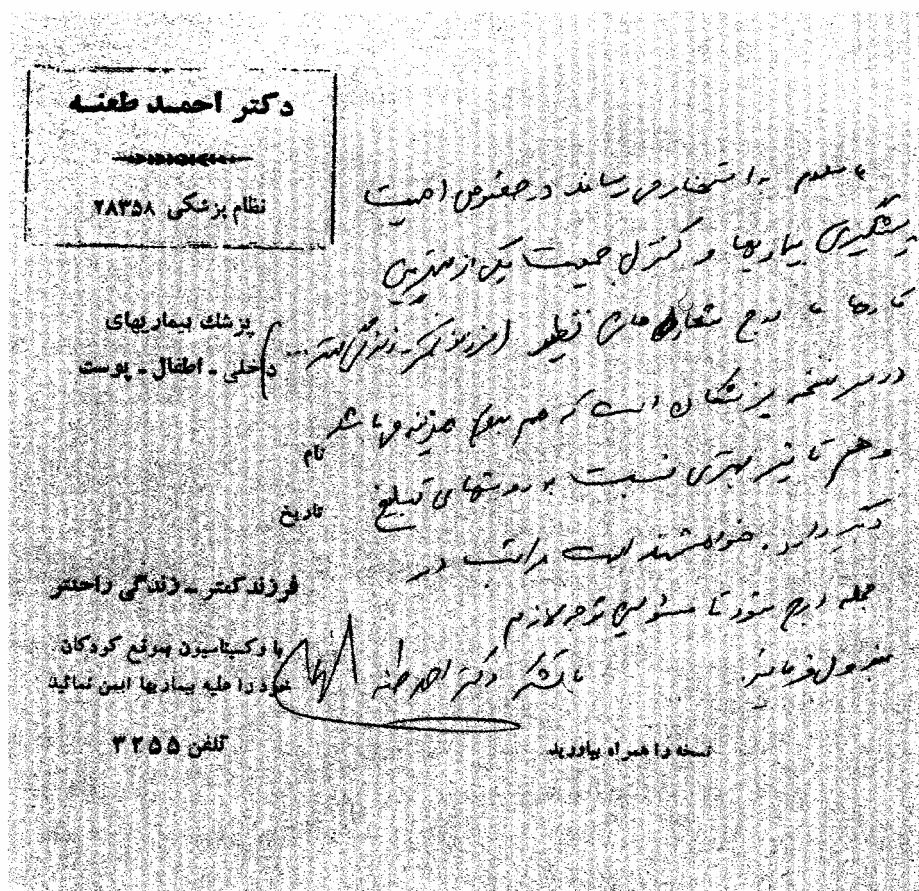 دکتر احمد طعنه
نظام پزشکی ۲۸۳۵۸
پزشك بیماریهای
داخلی - اطفال - پوست
نام
تاریخ
فرزند کمتر - زندگی راحتتر
با واکسیناسیون بموقع کودکان
خود را علیه بیماریها ایمن نمائید
تلفن ۳۲۵۵
با سلام به استحضار میرساند در خصوص اهمیت
پیشگیری بیماریها و کنترل جمعیت یکی از مهمترین
کارها با درج شعارهای نظیر (فرزند کمتر - زندگی بهتر ...)
در سر نسخه پزشکان است که هم بدون هزینه میباشد
و هم تاثیر بهتری نسبت به روشهای تبلیغ
دیگر دارد. خواهشمند است مراتب در
مجله درج شود تا مسئولین توجه لازم
مبذول فرمایند.
با تشکر دکتر احمد طعنه
نسخه را همراه بیاورید